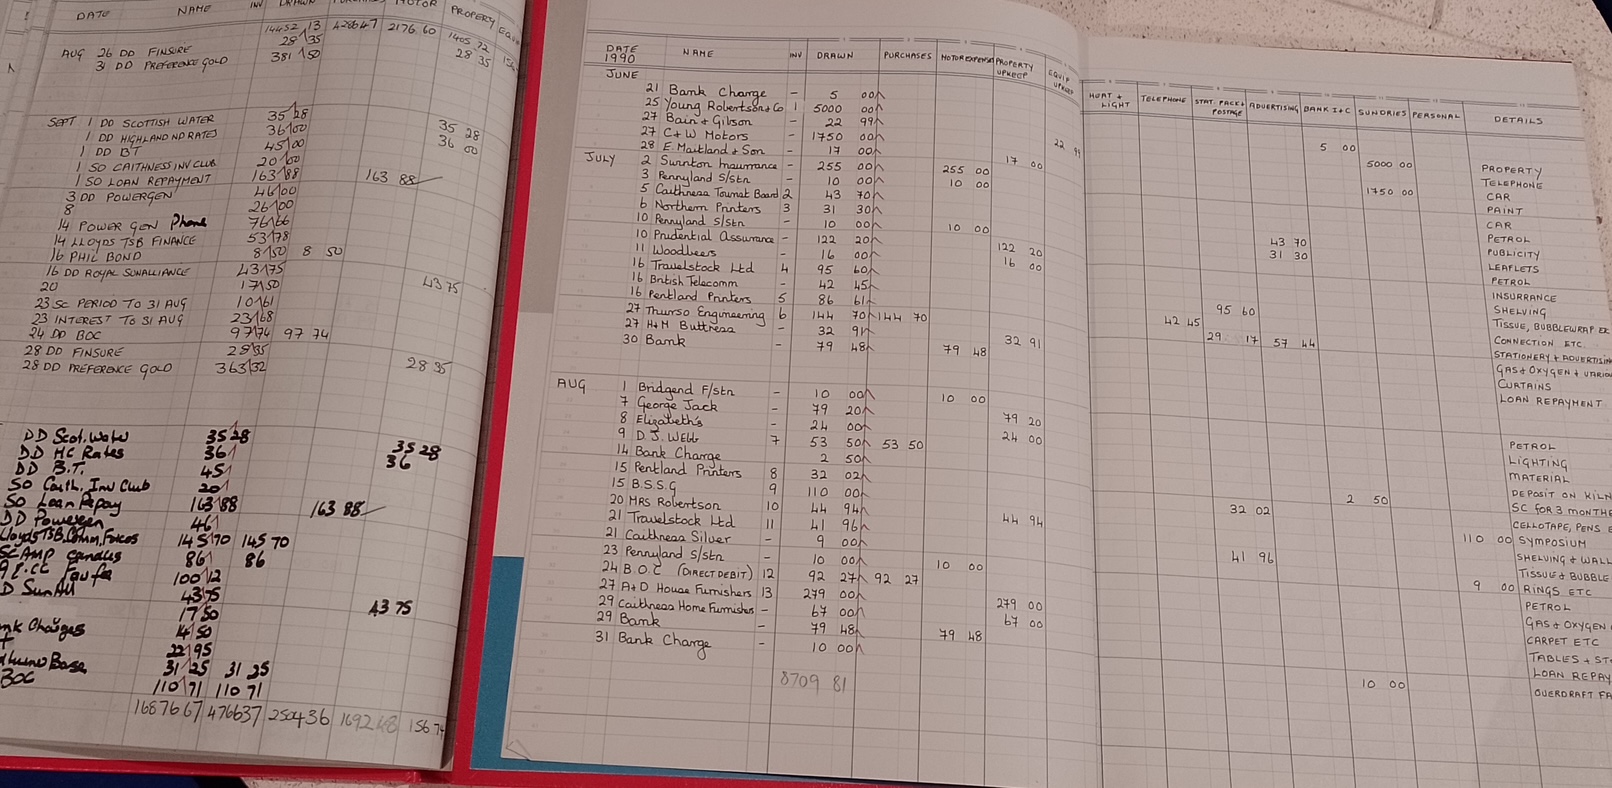 DATE NAME INV DRAWN PURCHASES MOTOR PROPERTY EQUIP
14452 13 4286 47 2176.60 1405.72
AUG 26 DD FINSURE 28 35 28 35
31 DD PREFERENCE GOLD 381 50
SEPT 1 DD SCOTTISH WATER 35 28 35 28
1 DD HIGHLAND ND RATES 36 00 36 00
1 DD BT 45 00
1 SO CAITHNESS INV CLUB 20 00
1 SO LOAN REPAYMENT 163 88 163 88
3 DD POWERGEN 46 00
8 26 00
14 POWER GEN Phone 76 66
14 LLOYDS TSB FINANCE 53 78
16 PHIL BOND 8 50 8 50
16 DD ROYAL SUNALLIANCE 43 75 43 75
20 17 50
23 SC PERIOD TO 31 AUG 10 61
23 INTEREST TO 31 AUG 23 68
24 DD BOC 97 74 97 74
28 DD FINSURE 28 35 28 35
28 DD PREFERENCE GOLD 363 32
DD Scot. Water 35 28 35 28
DD HC Rates 36 36
DD B.T. 45
SO Caith. Inv Club 20
SO Loan Repay 163 88 163 88
DD Powergen 46
Lloyds TSB 145 70 145 70
SCAMP Candles 86 86
100 12
D Sun All 43 75 43 75
17 50
Charges 14 50
22 95
Base 31 25 31 25
BOC 110 71 110 71
16876 67 4766 37 2504 36 1692 156 74
DATE 1990 NAME INV DRAWN PURCHASES MOTOR EXPENSES PROPERTY UPKEEP EQUIP UPKEEP HEAT + LIGHT TELEPHONE STAT. PACK + POSTAGE ADVERTISING BANK I+C SUNDRIES PERSONAL DETAILS
JUNE
21 Bank Charge - 5 00 5 00
25 Young Robertson + Co 1 5000 00 5000 00 PROPERTY
27 Bain + Gibson - 22 99 22 99 TELEPHONE
27 C + W Motors - 1750 00 1750 00 CAR
28 E. Maitland + Son - 17 00 17 00 PAINT
JULY 2 Swinton Insurance - 255 00 255 00 CAR
3 Pennyland S/stn - 10 00 10 00 PETROL
5 Caithness Tourist Board 2 43 70 43 70 PUBLICITY
6 Northern Printers 3 31 30 31 30 LEAFLETS
10 Pennyland S/stn - 10 00 10 00 PETROL
10 Prudential Assurance - 122 20 122 20 INSURRANCE
11 Woodleers - 16 00 16 00 SHELVING
16 Travelstock Ltd 4 95 60 95 60 TISSUE, BUBBLEWRAP ETC
16 British Telecomm - 42 45 42 45 CONNECTION ETC.
16 Pentland Printers 5 86 61 29 17 57 44 STATIONERY + ADVERTISIN
27 Thurso Engineering 6 144 70 144 70 GAS + OXYGEN + VARIOU
27 H+M Buttress - 32 91 32 91 CURTAINS
30 Bank - 79 48 79 48 LOAN REPAYMENT
AUG 1 Bridgend F/stn - 10 00 10 00 PETROL
7 George Jack - 79 20 79 20 LIGHTING
8 Elizabeth's - 24 00 24 00 MATERIAL
9 D. J. Webb 7 53 50 53 50 DEPOSIT ON KILN
14 Bank Charge - 2 50 2 50 SC FOR 3 MONTHS
15 Pentland Printers 8 32 02 32 02 CELLOTAPE, PENS E
15 B.S.S.G 9 110 00 110 00 SYMPOSIUM
20 MRS Robertson 10 44 94 44 94 SHELVING + WALL
21 Travelstock Ltd 11 41 96 41 96 TISSUE + BUBBLE
21 Caithness Silver - 9 00 9 00 RINGS ETC
23 Pennyland S/stn - 10 00 10 00 PETROL
24 B.O.C (DIRECT DEBIT) 12 92 27 92 27 GAS + OXYGEN
27 A+D House Furnishers 13 279 00 279 00 CARPET ETC
29 Caithness Home Furnishers - 67 00 67 00 TABLES + ST
29 Bank - 79 48 79 48 LOAN REPAY
31 Bank Charge - 10 00 10 00 OVERDRAFT FA
8709 81